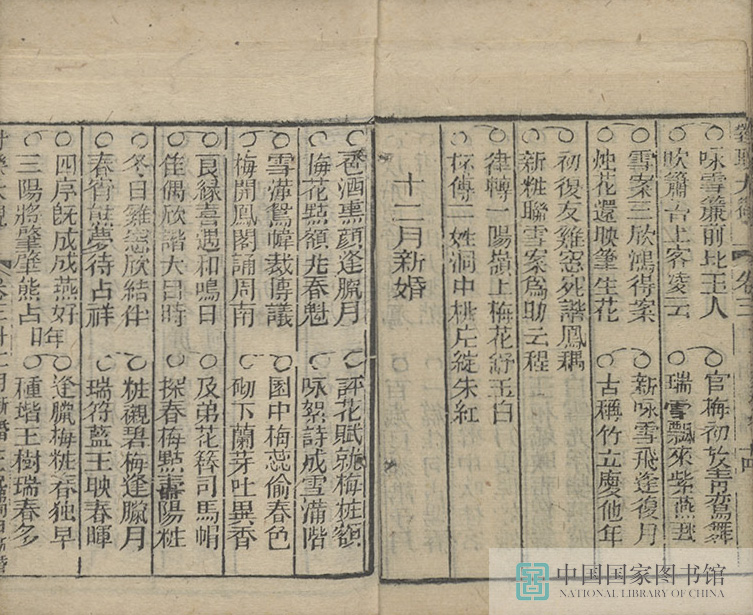 咏雪簾前比玉人
官梅初放青鸞舞
吹簫台上客凌云
瑞雪飄來紫燕
雪案三欣鴻得案
新咏雪飛逢復月
烛花還映筆生花
古稱竹立慶他年
初復友雞窓死諧鳳耦
新粧聯雪案為助云程
律轉一陽嶺上梅花舒玉白
杯傳二姓洞中桃片綻朱紅
十二月新婚
酒熏顔逢臘月
評花賦就梅粧額
梅花㸃額兆春魁
咏絮詩成雪滿階
雪滿鴛幃裁傳議
園中梅蕊偷春色
梅開鳳閣誦周南
砌下蘭芽吐異香
良緣喜遇和鳴日
及弟花簪司馬帽
佳偶欣諧大呂時
探春梅㸃壽陽粧
冬日雞窓欣結伴
粧襯碧梅逢臘月
春宵熊夢待占祥
瑞符藍玉映春暉
四序既成成燕好
逢臘梅粧春独早
三陽將肇肇熊占
種堦玉樹瑞春多
卷三
中国国家图书馆
NATIONAL LIBRARY OF CHINA